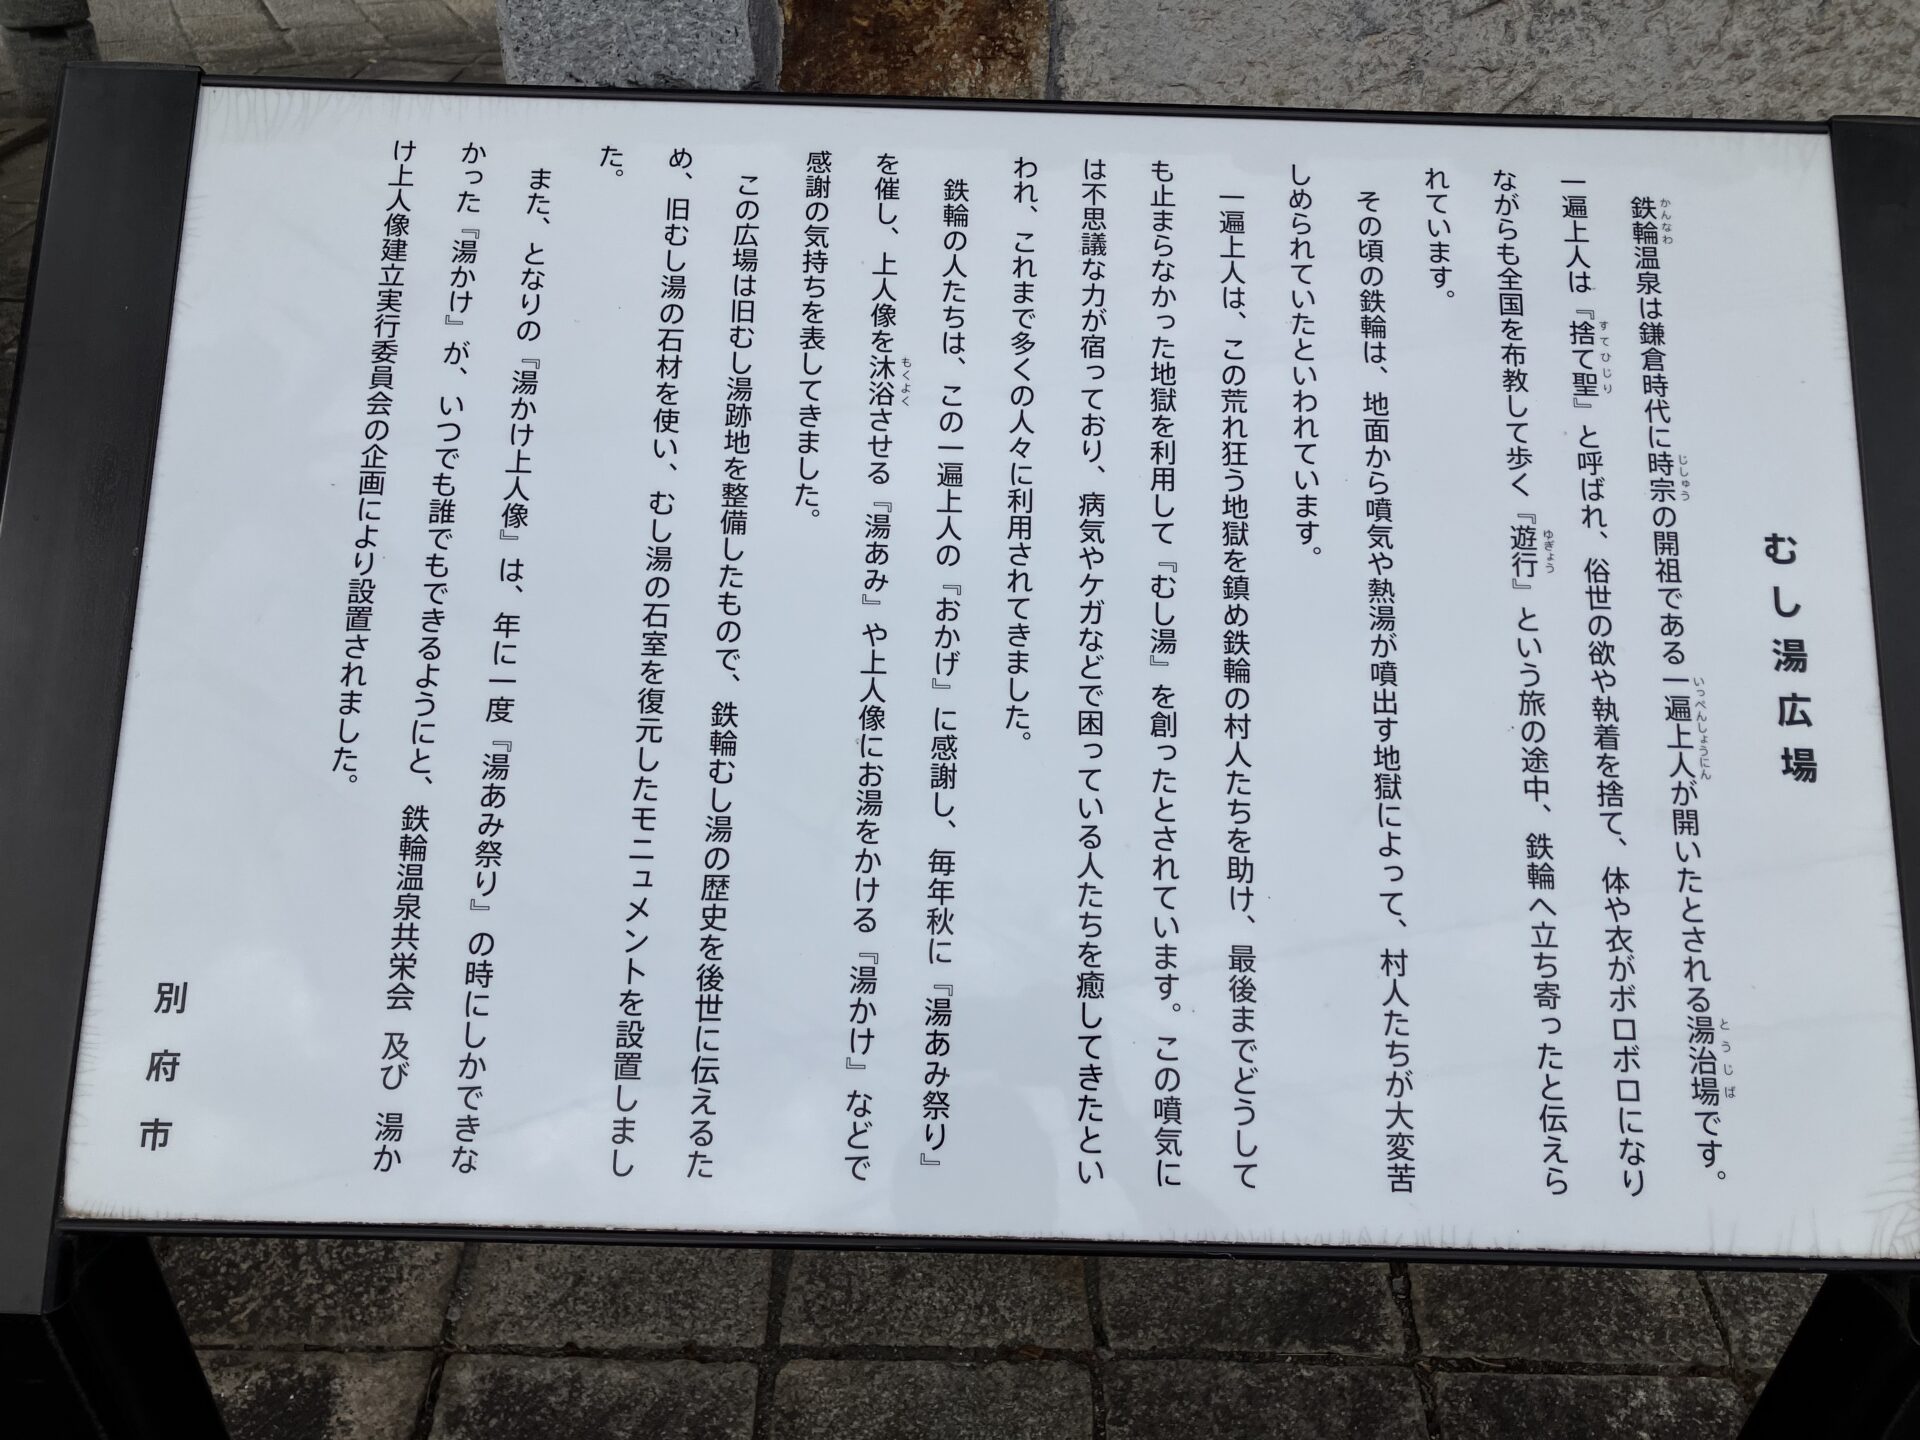 むし湯広場
鉄輪温泉は鎌倉時代に時宗の開祖である一遍上人が開いたとされる湯治場です。
かんなわ
じしゅう
いっぺんしょうにん
とうじば
一遍上人は『捨て聖』と呼ばれ、俗世の欲や執着を捨て、体や衣がボロボロになり
すてひじり
ながらも全国を布教して歩く『遊行』という旅の途中、鉄輪へ立ち寄ったと伝えら
ゆぎょう
れています。
その頃の鉄輪は、地面から噴気や熱湯が噴出す地獄によって、村人たちが大変苦
しめられていたといわれています。
一遍上人は、この荒れ狂う地獄を鎮め鉄輪の村人たちを助け、最後までどうして
も止まらなかった地獄を利用して『むし湯』を創ったとされています。この噴気に
は不思議な力が宿っており、病気やケガなどで困っている人たちを癒してきたとい
われ、これまで多くの人々に利用されてきました。
鉄輪の人たちは、この一遍上人の『おかげ』に感謝し、毎年秋に『湯あみ祭り』
を催し、上人像を沐浴させる『湯あみ』や上人像にお湯をかける『湯かけ』などで
もくよく
感謝の気持ちを表してきました。
この広場は旧むし湯跡地を整備したもので、鉄輪むし湯の歴史を後世に伝えるた
め、旧むし湯の石材を使い、むし湯の石室を復元したモニュメントを設置しまし
た。
また、となりの『湯かけ上人像』は、年に一度『湯あみ祭り』の時にしかできな
かった『湯かけ』が、いつでも誰でもできるようにと、鉄輪温泉共栄会 及び 湯か
け上人像建立実行委員会の企画により設置されました。
別府市